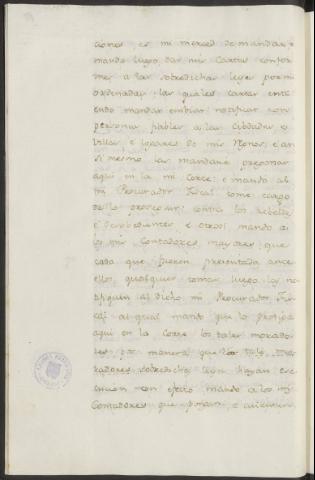 ciones, es mi merced de mandar, e
mando luego dar mis Cartas confor-
mes a las sobredichas leyes por mi
ordenadas, las quales cartas enti-
endo mandar embiar notificar con
personas fiables a las Cibdades e
Villas e lugares de mis Reynos, e an
si mesmo las mandaré pregonar
aqui en la mi Corte: e mando al
mi Procurador Fiscal tome cargo
de lo proseguir contra los rebeldes
e desobedientes, e otrosi mando a
los mis Contadores mayores que
cada que fueren presentada ante
ellos, qualquier tomar luego lo no-
tifiquen al dicho mi Procurador Fis-
cal, al qual mando que lo prosiga
aqui en la Corte los tales
por manera que los tales
sobredichas leyes hayan exe-
cucion con efecto mando a los mis
Contadores que pongan, e